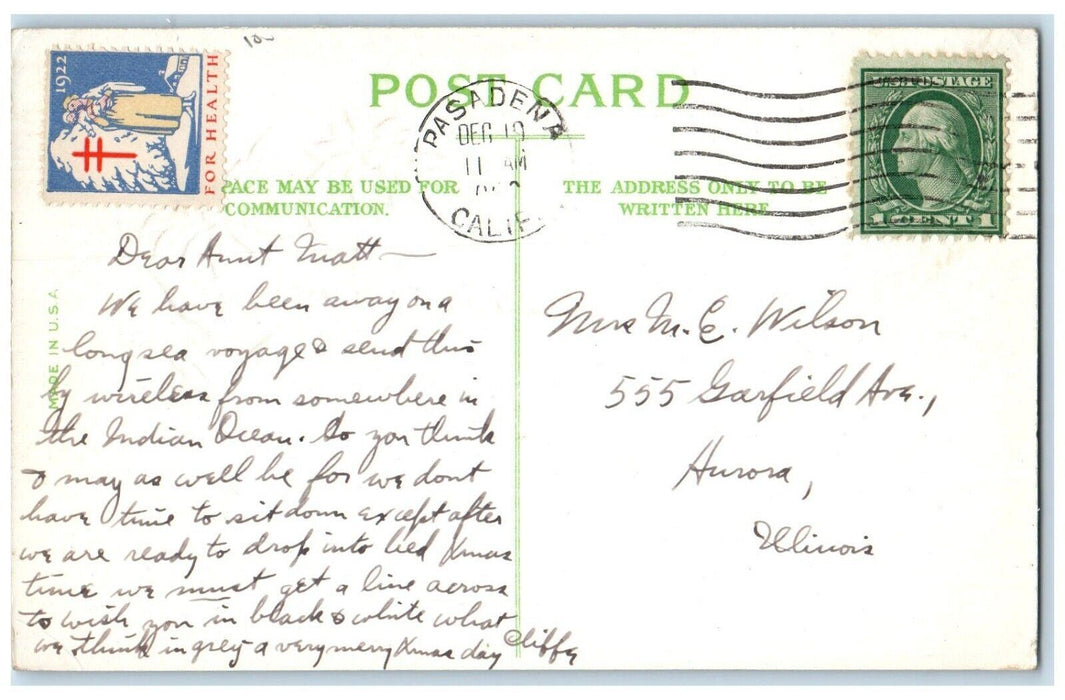 1922
FOR HEALTH
POST CARD
PASADENA
DEC 19
11 AM
CALIF.
U.S. POSTAGE
1 CENT 1
SPACE MAY BE USED FOR
COMMUNICATION.
THE ADDRESS ONLY TO BE
WRITTEN HERE
MADE IN U.S.A.
Dear Aunt Matt —
We have been away on a
long sea voyage & send this
by wireless from somewhere in
the Indian Ocean. So you think
& may as well be for we dont
have time to sit down except after
we are ready to drop into bed Xmas
time we must get a line across
to wish you in black & white what
we think in grey a very merry Xmas day Cliffy
Mrs M. E. Wilson
555 Garfield Ave.,
Aurora,
Illinois